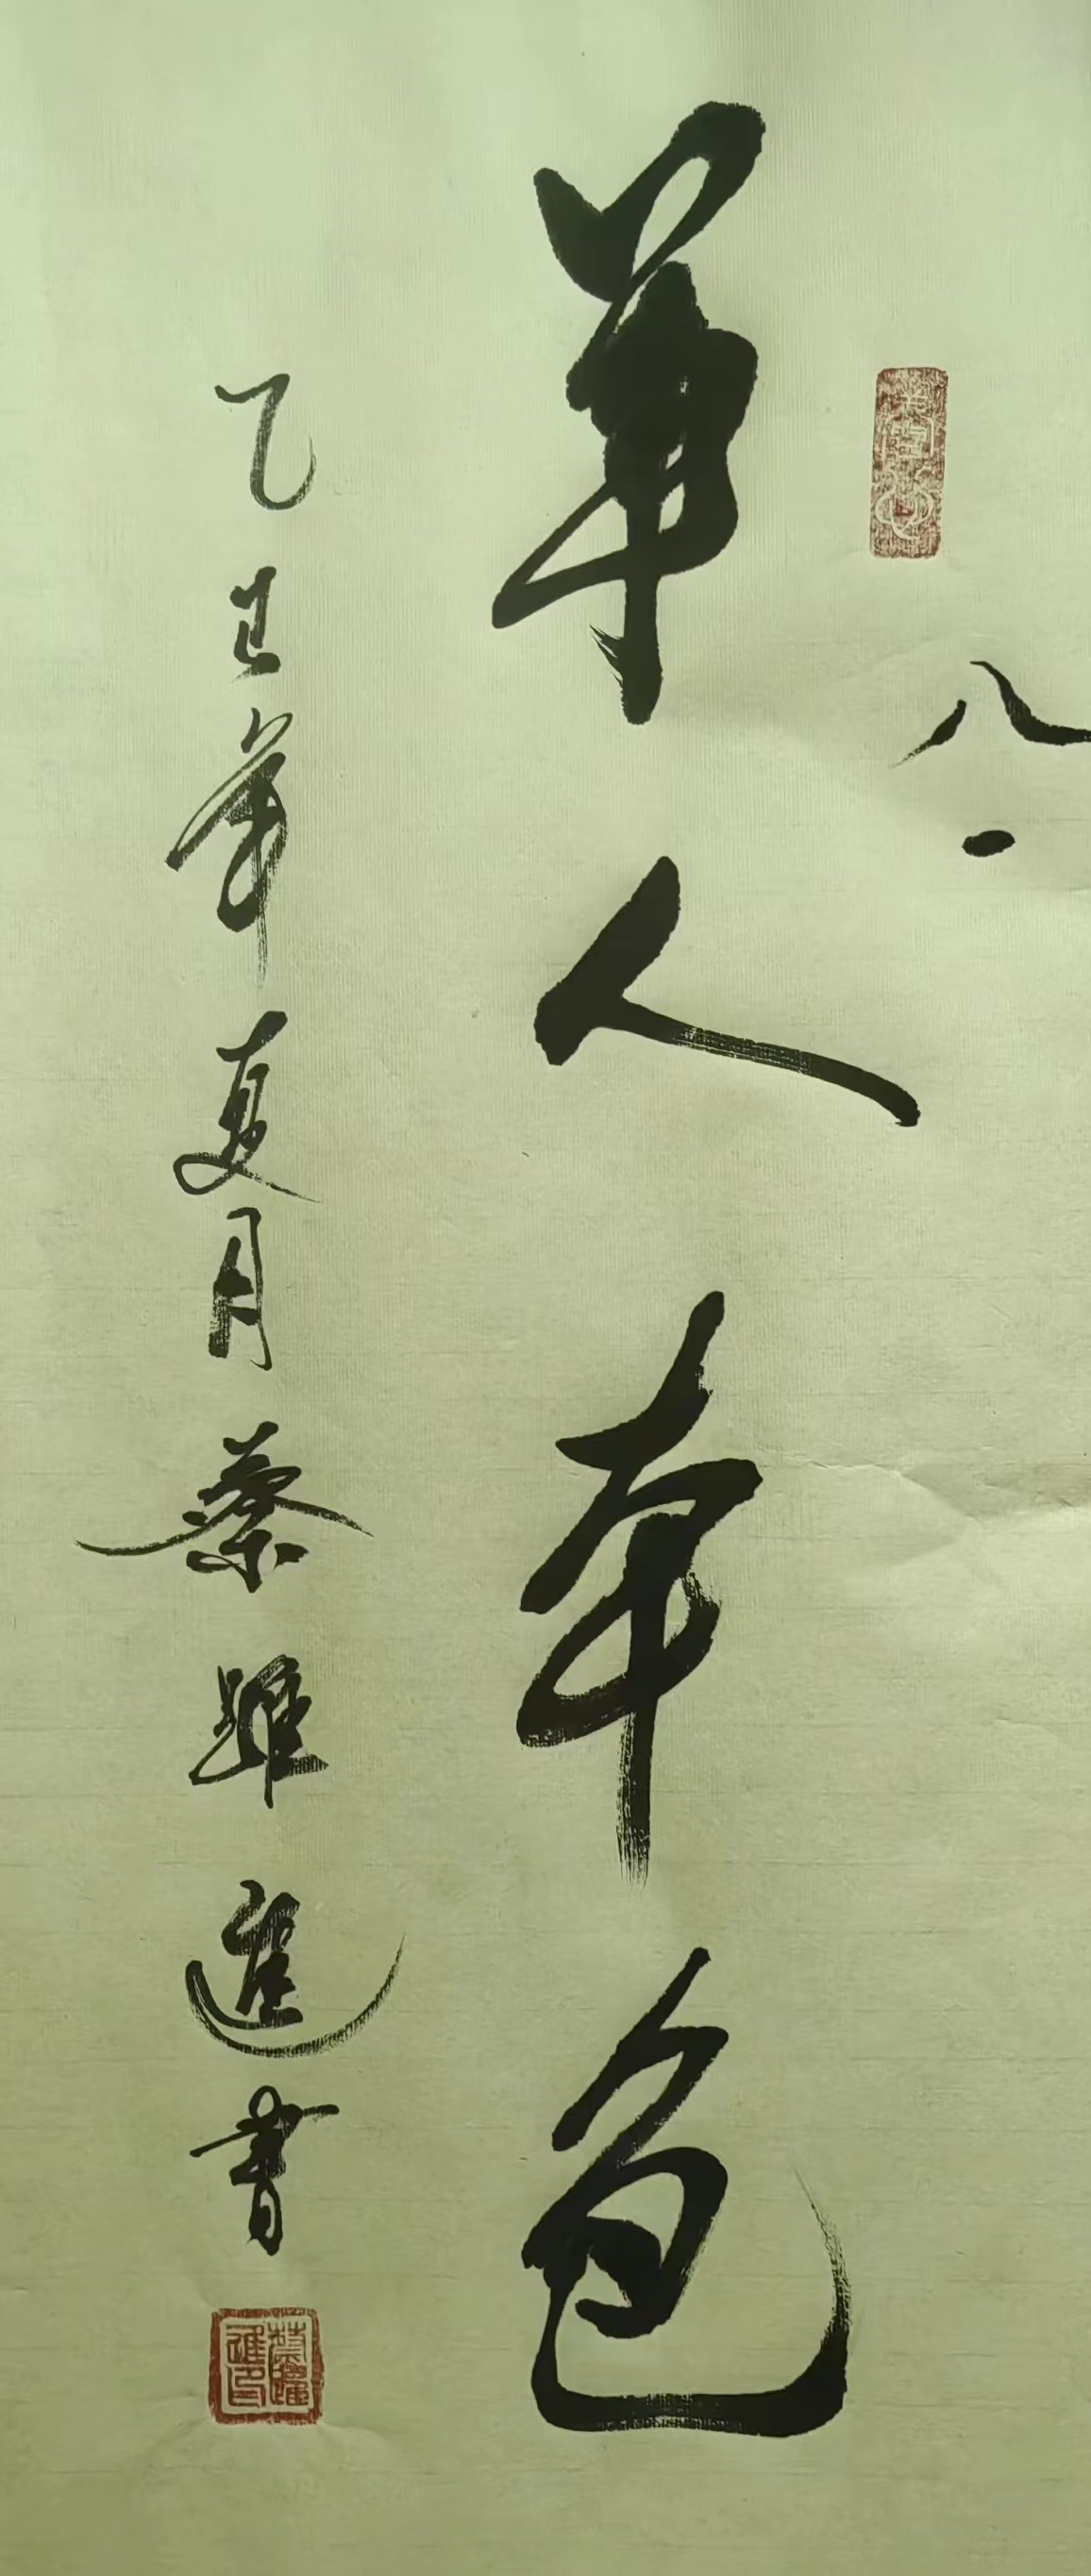 八一
军人本色
乙巳年夏月蔡跃進書